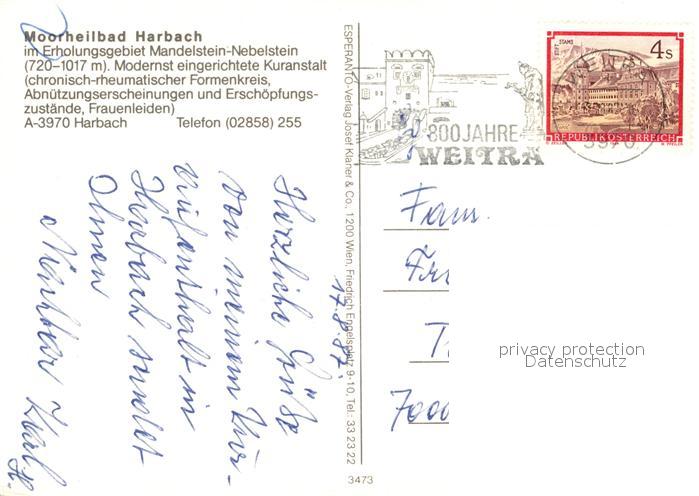 Moorheilbad Harbach
im Erholungsgebiet Mandelstein-Nebelstein
(720–1017 m). Modernst eingerichtete Kuranstalt
(chronisch-rheumatischer Formenkreis,
Abnützungserscheinungen und Erschöpfungs-
zustände, Frauenleiden)
A-3970 Harbach Telefon (02858) 255
17.8.87.
Herzliche Grüße
von meinem Kur-
aufenthalt in
Harbach sendet
Ihnen
Karl
ESPERANTO-Verlag Josef Klaner & Co., 1200 Wien, Friedrich Engelsplatz 9-10, Tel.: 33 23 22
3473
800 JAHRE
WEITRA
STIFT STAMS
4s
REPUBLIK ÖSTERREICH
3970
Fam.
7000
privacy protection
Datenschutz